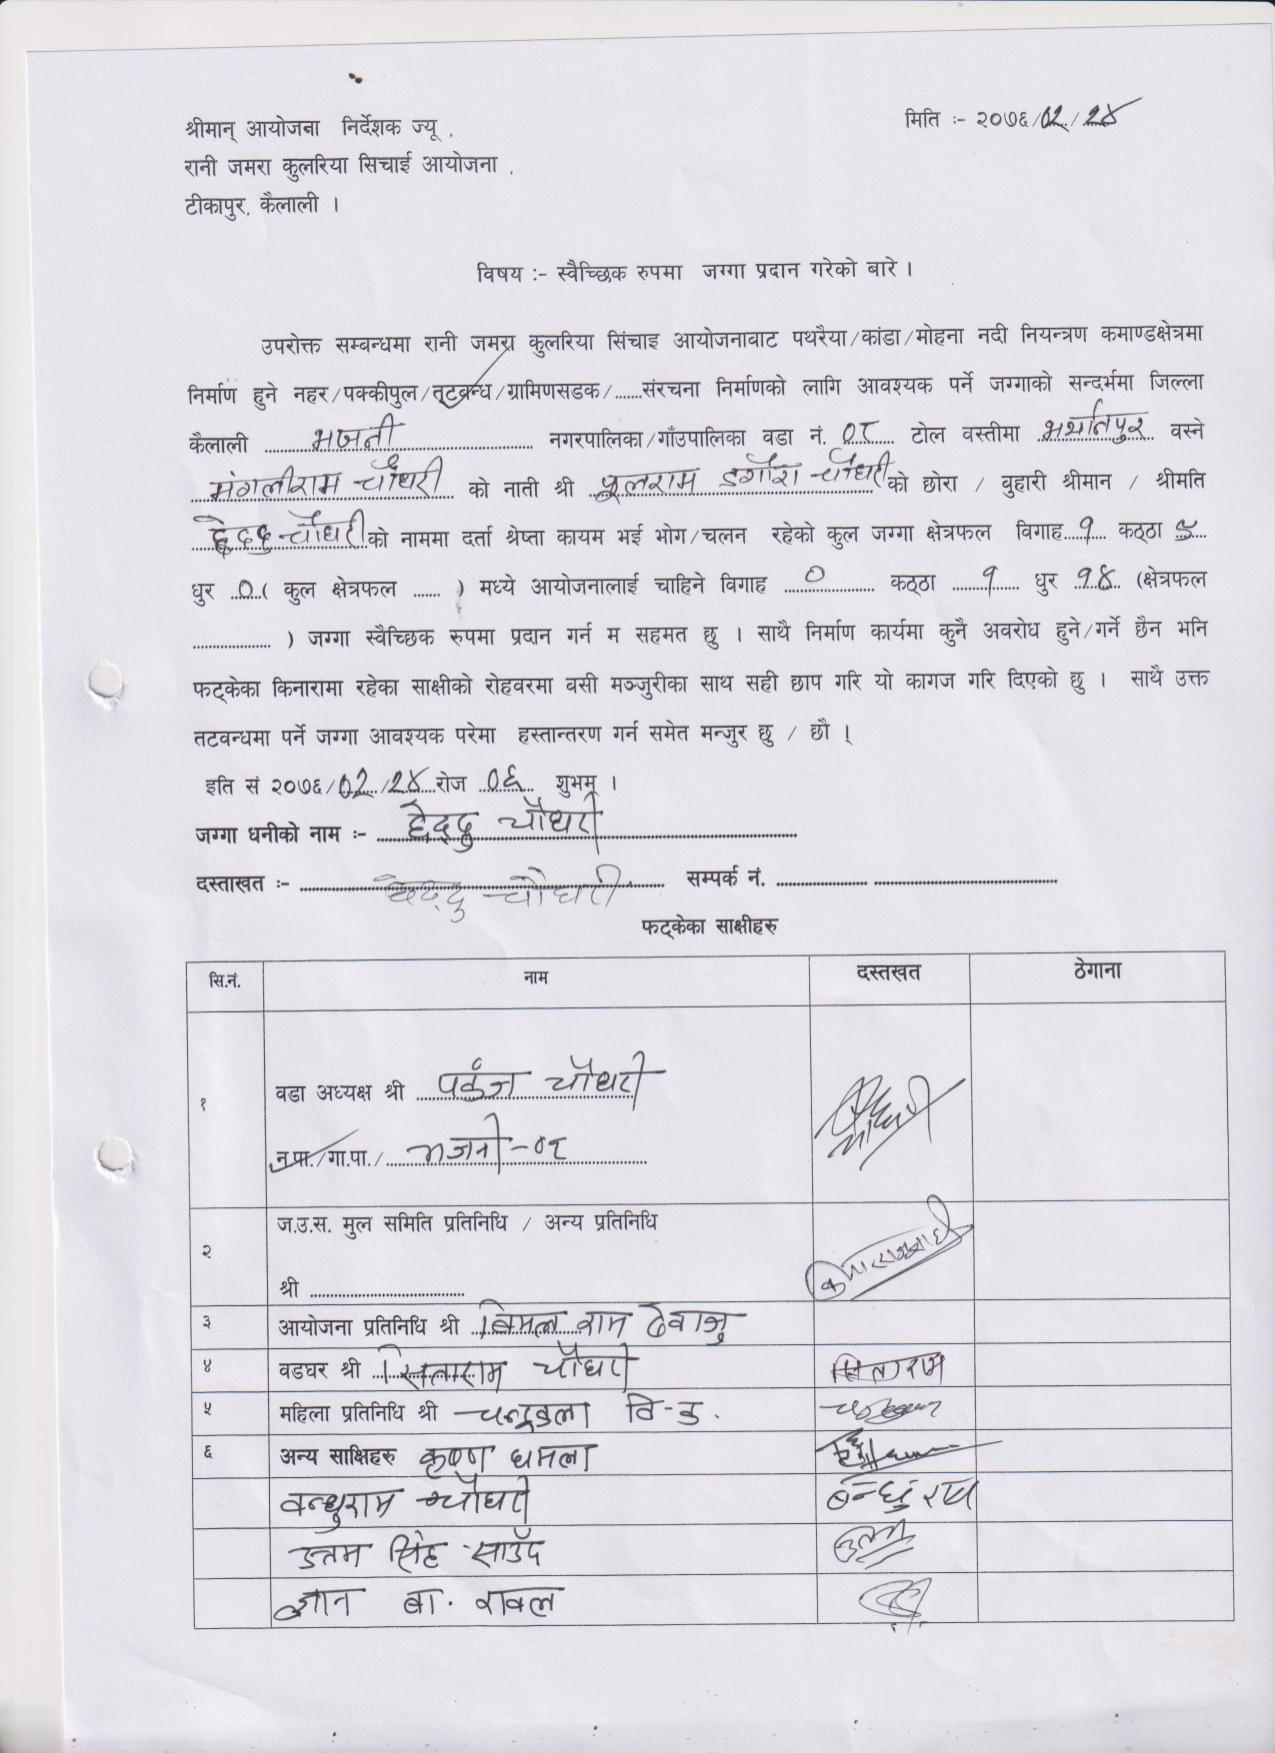 श्रीमान् आयोजना निर्देशक ज्यू ,
मिति :- २०७६/०२/२४
रानी जमरा कुलरिया सिचाई आयोजना ,
टीकापुर, कैलाली ।
विषय :- स्वैच्छिक रुपमा जग्गा प्रदान गरेको बारे ।
उपरोक्त सम्बन्धमा रानी जमरा कुलरिया सिंचाइ आयोजनाबाट पथरैया/कांडा/मोहना नदी नियन्त्रण कमाण्डक्षेत्रमा
निर्माण हुने नहर/पक्कीपुल/तटबन्ध/ग्रामिणसडक/.......संरचना निर्माणको लागि आवश्यक पर्ने जग्गाको सन्दर्भमा जिल्ला
कैलाली भजनी नगरपालिका/गाँउपालिका वडा नं. ०८ टोल वस्तीमा वस्ने
मंगलीराम चौधरी को नाती श्री फूलराम डगौरा चौधरी को छोरा / बुहारी श्रीमान / श्रीमति
छेदु चौधरी को नाममा दर्ता श्रेष्ता कायम भई भोग/चलन रहेको कुल जग्गा क्षेत्रफल विगाह १ कठ्ठा ५
धुर ० ( कुल क्षेत्रफल ...... ) मध्ये आयोजनालाई चाहिने विगाह ० कठ्ठा १ धुर १४ (क्षेत्रफल
.................... ) जग्गा स्वैच्छिक रुपमा प्रदान गर्न म सहमत छु । साथै निर्माण कार्यमा कुनै अवरोध हुने/गर्ने छैन भनि
फट्केका किनारामा रहेका साक्षीको रोहवरमा बसी मञ्जुरीका साथ सही छाप गरि यो कागज गरि दिएको छु । साथै उक्त
तटवन्धमा पर्ने जग्गा आवश्यक परेमा हस्तान्तरण गर्न समेत मन्जुर छु / छौ ।
इति सं २०७६/०२/२४ रोज ०६ शुभम् ।
जग्गा धनीको नाम :- छेद्दु चौधरी
दस्ताखत :- छेद्दु चौधरी सम्पर्क नं. ....................
फट्केका साक्षीहरु
सि.नं. नाम दस्तखत ठेगाना
१ वडा अध्यक्ष श्री पकंज चौधरी
न.पा./गा.पा./ भजनी-०८
२ ज.उ.स. मुल समिति प्रतिनिधि / अन्य प्रतिनिधि
श्री ....................
३ आयोजना प्रतिनिधि श्री विमल राम देवाजु
४ वडघर श्री सिताराम चौधरी सिताराम
५ महिला प्रतिनिधि श्री चन्द्रकला वि.क.
६ अन्य साक्षिहरु कृष्ण धमला
बन्धुराम चौधरी बन्धु राम
उत्तम सिंह साउँद उत्तम
ज्ञान बा. रावल